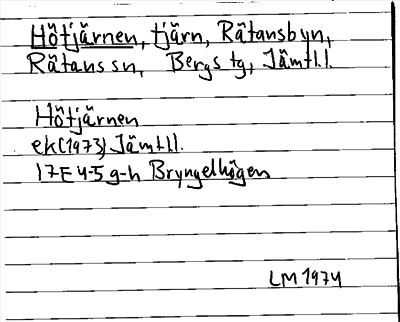 Hötjärnen, tjärn, Rätansbyn,
Rätans sn, Bergs tg, Jämtl.
Hötjärnen
ek(1973) Jämtl.
17E 4-5 g-h Bryngelhögen
LM 1974